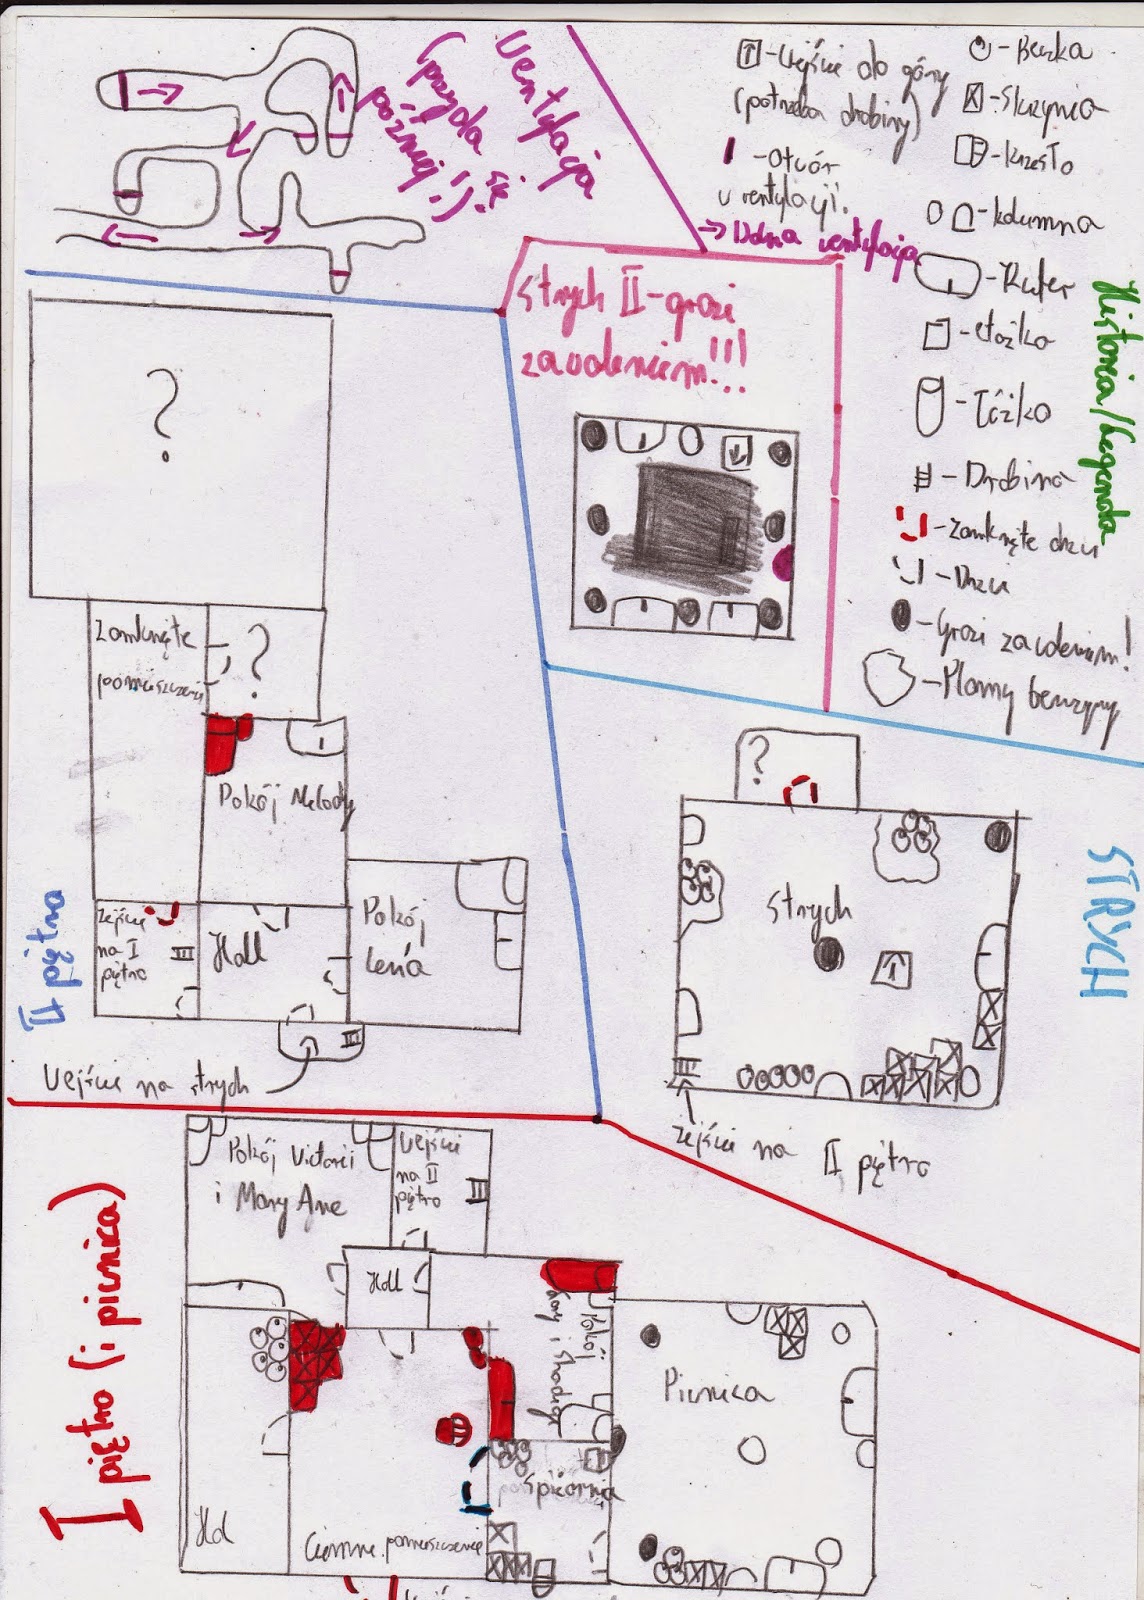 Wentylacja
(przyda się
później!).
Wejście do góry
(potrzeba drobiny)
- Otwór
w wentylacji.
→ Dolna wentylacja
- Beczka
- Skrzynia
- Krzesło
- kolumna
- Kufer
- Łóżko
- Drobina
- Zamknięte drzwi
- Drzwi
- Grozi zawaleniem!
- Plamy benzyny
Historia/Legenda
Strych II - grozi
zawaleniem!!!
?
Zamknięte
pomieszczenie
?
Pokój Melody
Pokój
Lena
Zejście
na I
piętro
Hall
II piętro
Wejście na strych
?
Strych
STRYCH
Zejście na II piętro
Pokój Victorii
i Mary Ane
Wejście
na II
piętro
Hall
Pokój
Piwnica
Spiżarnia
Hol
Ciemne pomieszczenie
I piętro (i piwnica)